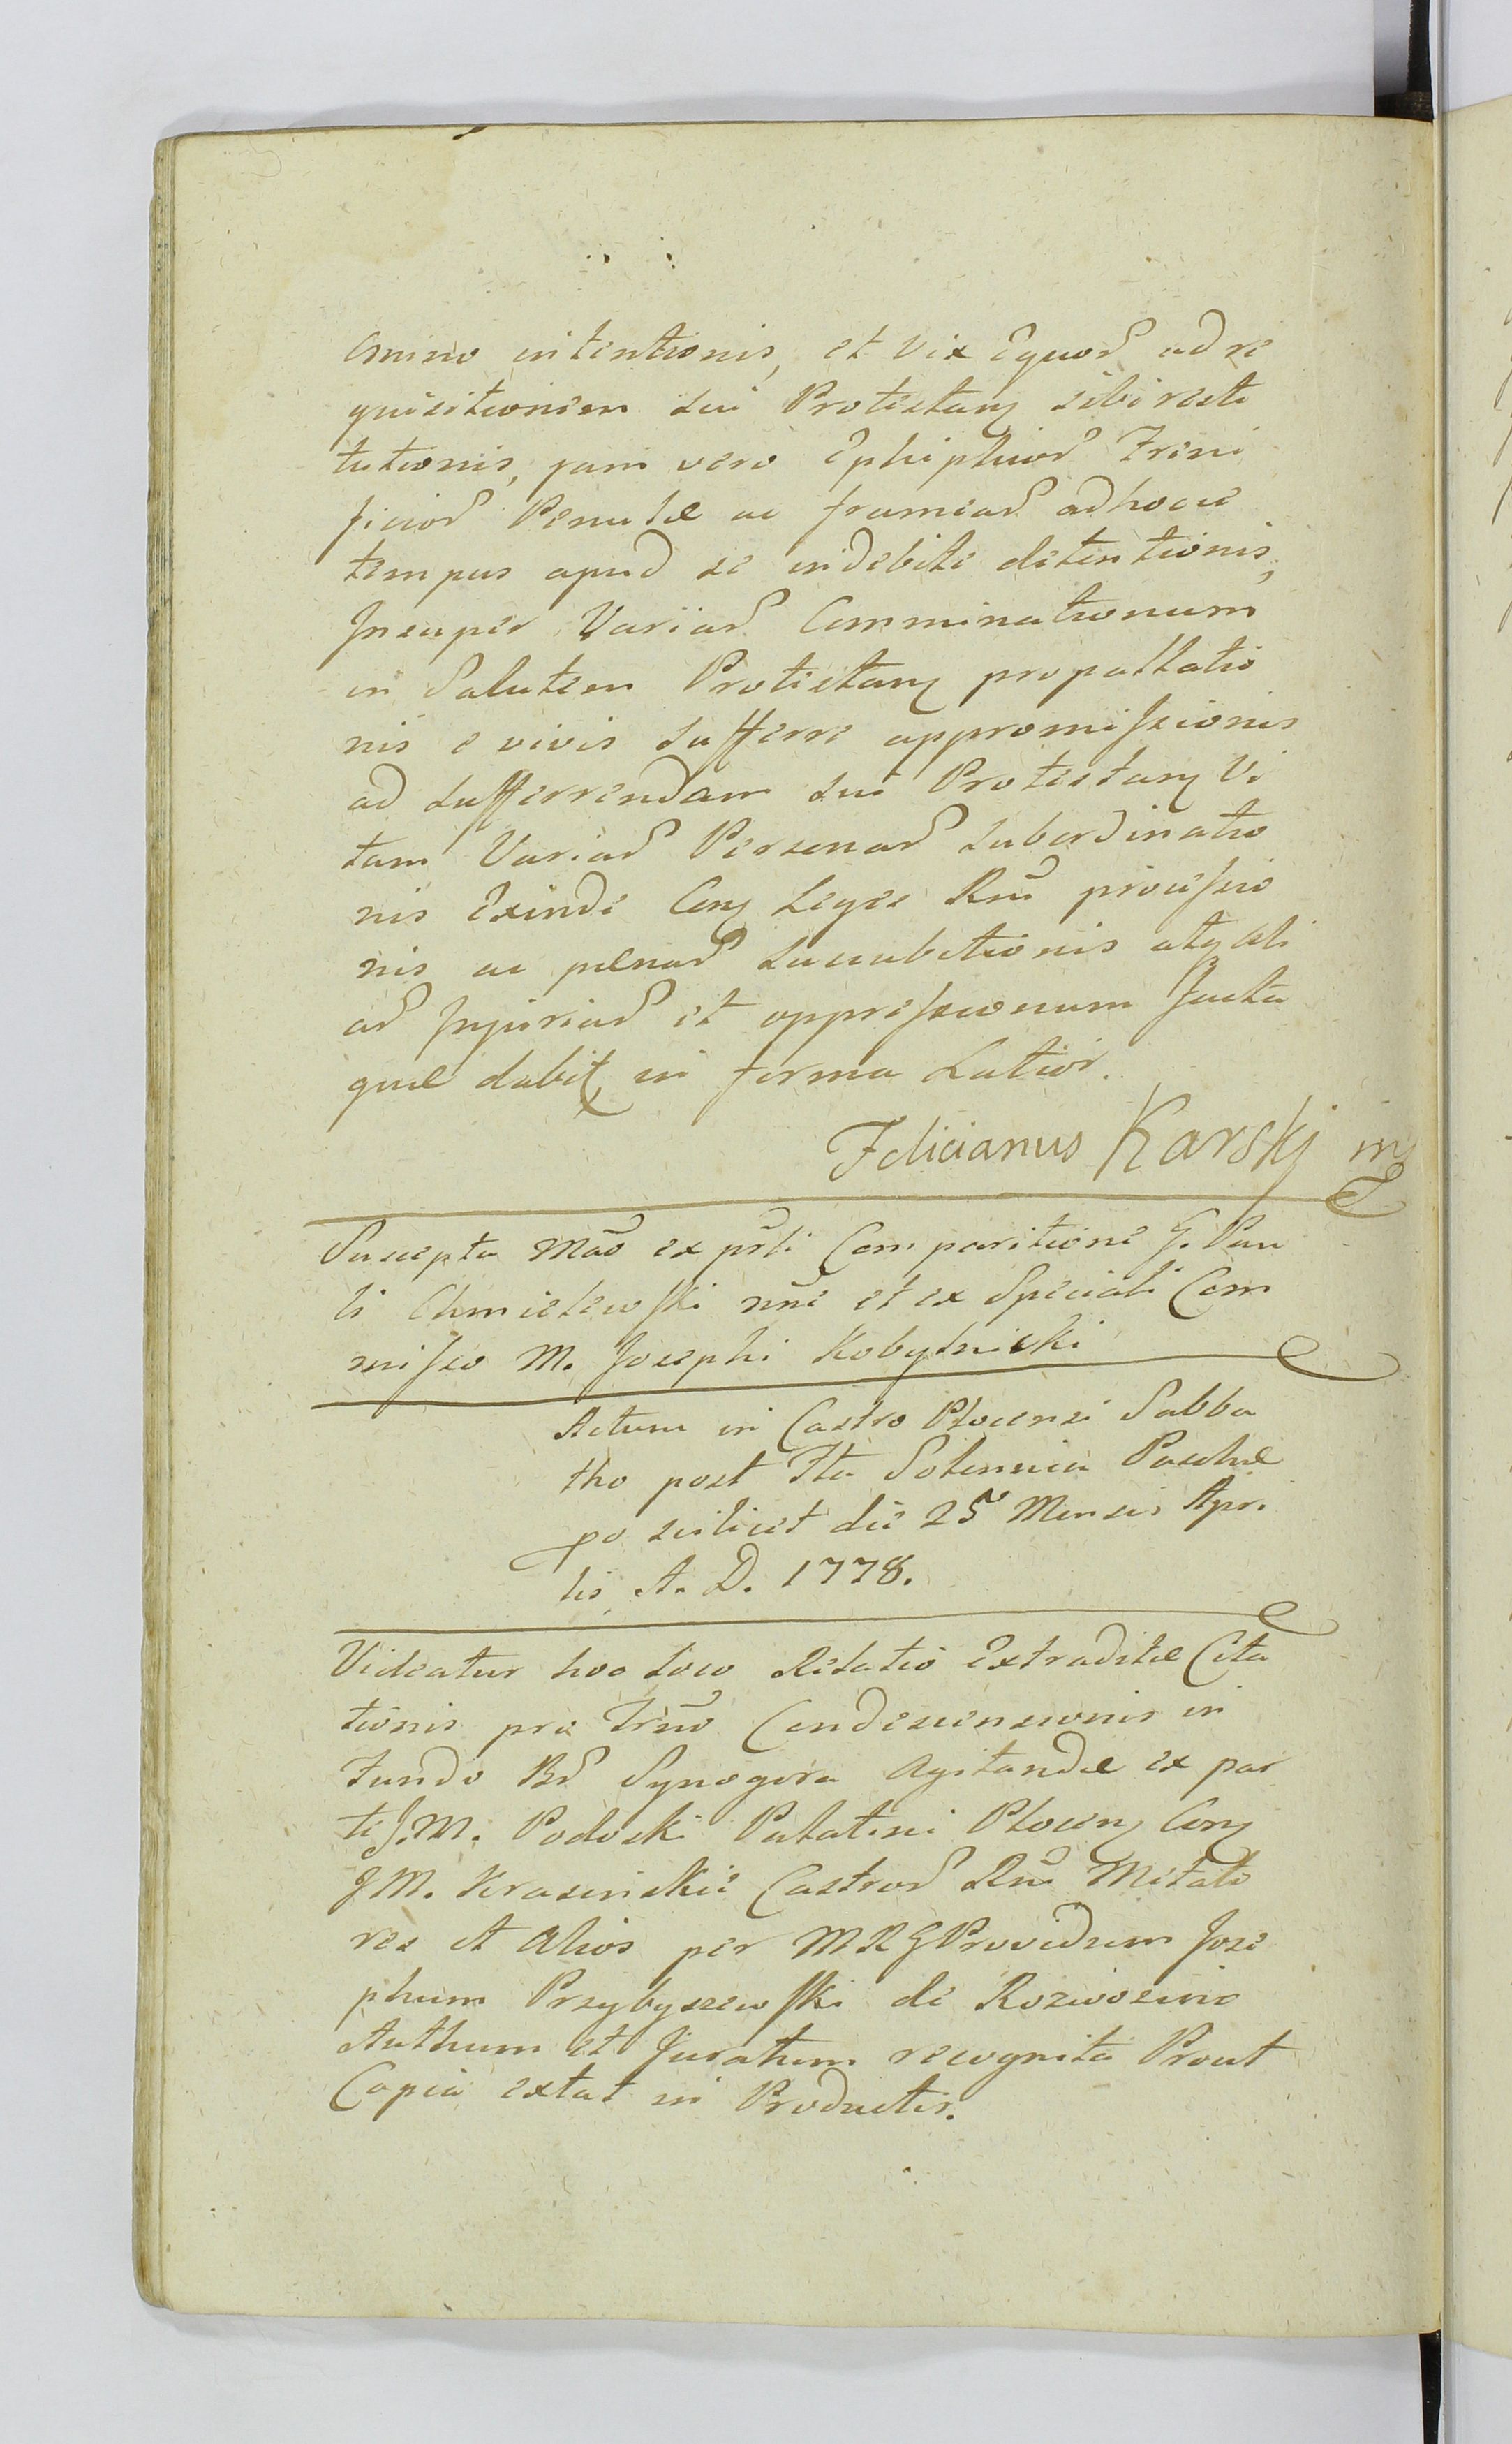 Omino intentionis, et vix Equor ad re
quisitionem sui Protestans sibi resti
tutionis, jam vero Ephiphior Freni
ficior Penulæ ac frameas adhocce
tempus apud se indebite detentionis,
Insuper Variar Comminationum
in Salutem Protestans propallatio
nis e vivis sufferre appromissionis
ad sufferrendam sui Protestans Vi
tam Variar Personar subordinatio
nis Exinde Cons Leges Rni processio
nis ac pænar succubitionis atq ali
ar Injuriar et oppressionum Juxta
quæ dabit in forma Latior.
Felicianus Karskj mp
Suscepta mão ex prsti Comparitione G. Pau
li Chmielewski nne et ex Speciali Com
misso M. Josephi Kobylnicki
Actum in Castro Plocensi Sabba
tho post Fta Solennia Paschæ
po scilicet die 25 Mensis Apri
lis A. D. 1778.
Videatur hoc loco Relatio Extraditæ Cita
tionis pro Trno Condescensionis in
Fundo Br Synogora Agitandæ ex par
te J.M. Podoski Palatini Plocens Cons
JM. Krasinskie Castror Rni Metato
res et Alios per MRG Providum Jose
phum Przybyszewski de Roziwozino
Authum et Juratum recognita Prout
Copia extat in Productis.